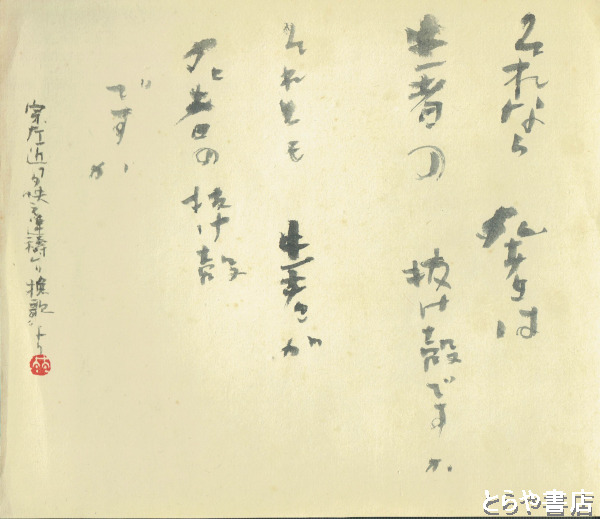 それなら 死者は
生者の 抜け殻ですか
それとも 生者が
死者の 抜け殻
ですか
宗左近
より
とらや書店